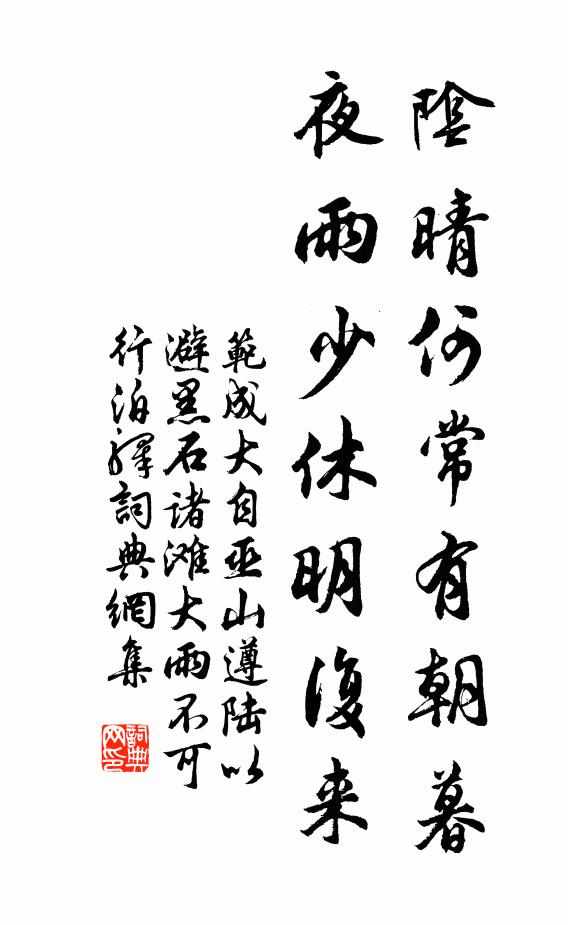 陰晴何常有朝暮
夜雨少休明復来
範成大自巫山遵陆以
避黑石诸滩大雨不可
行泊驛詞典網集
詞典
网印